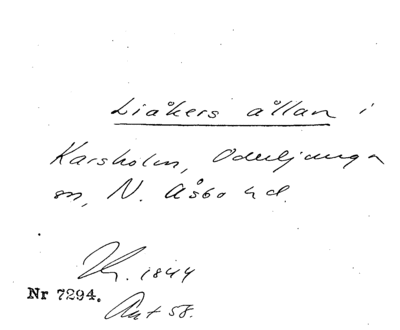 Liåkers ållan i
Karsholm, Oderljunga
sn, N. Åsbo hd.
Kr. 1844
Nr 7294.
Ant 58.